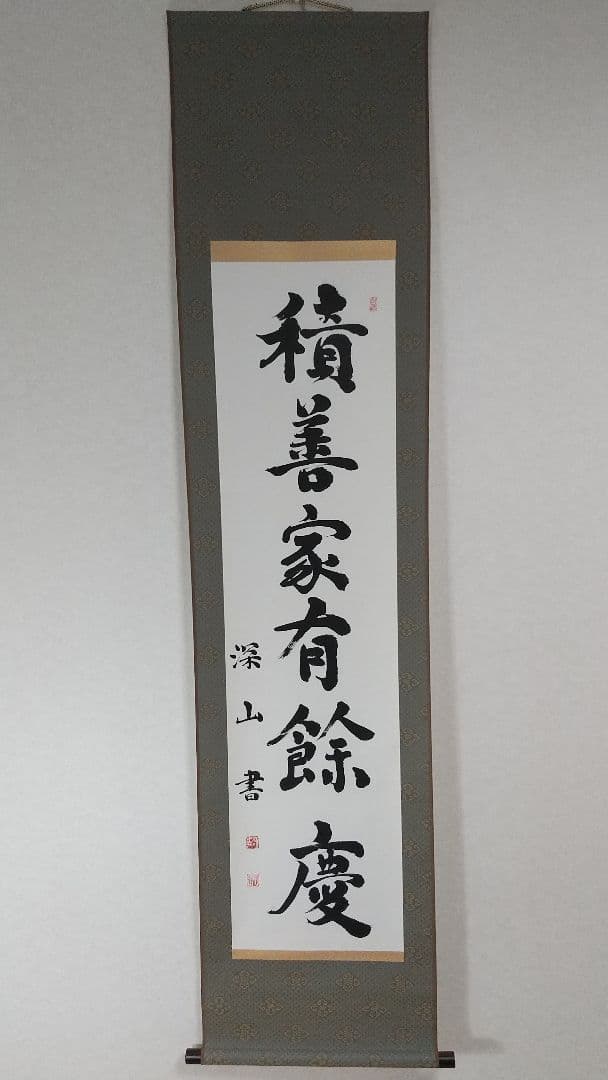 積善家有餘慶
深山書